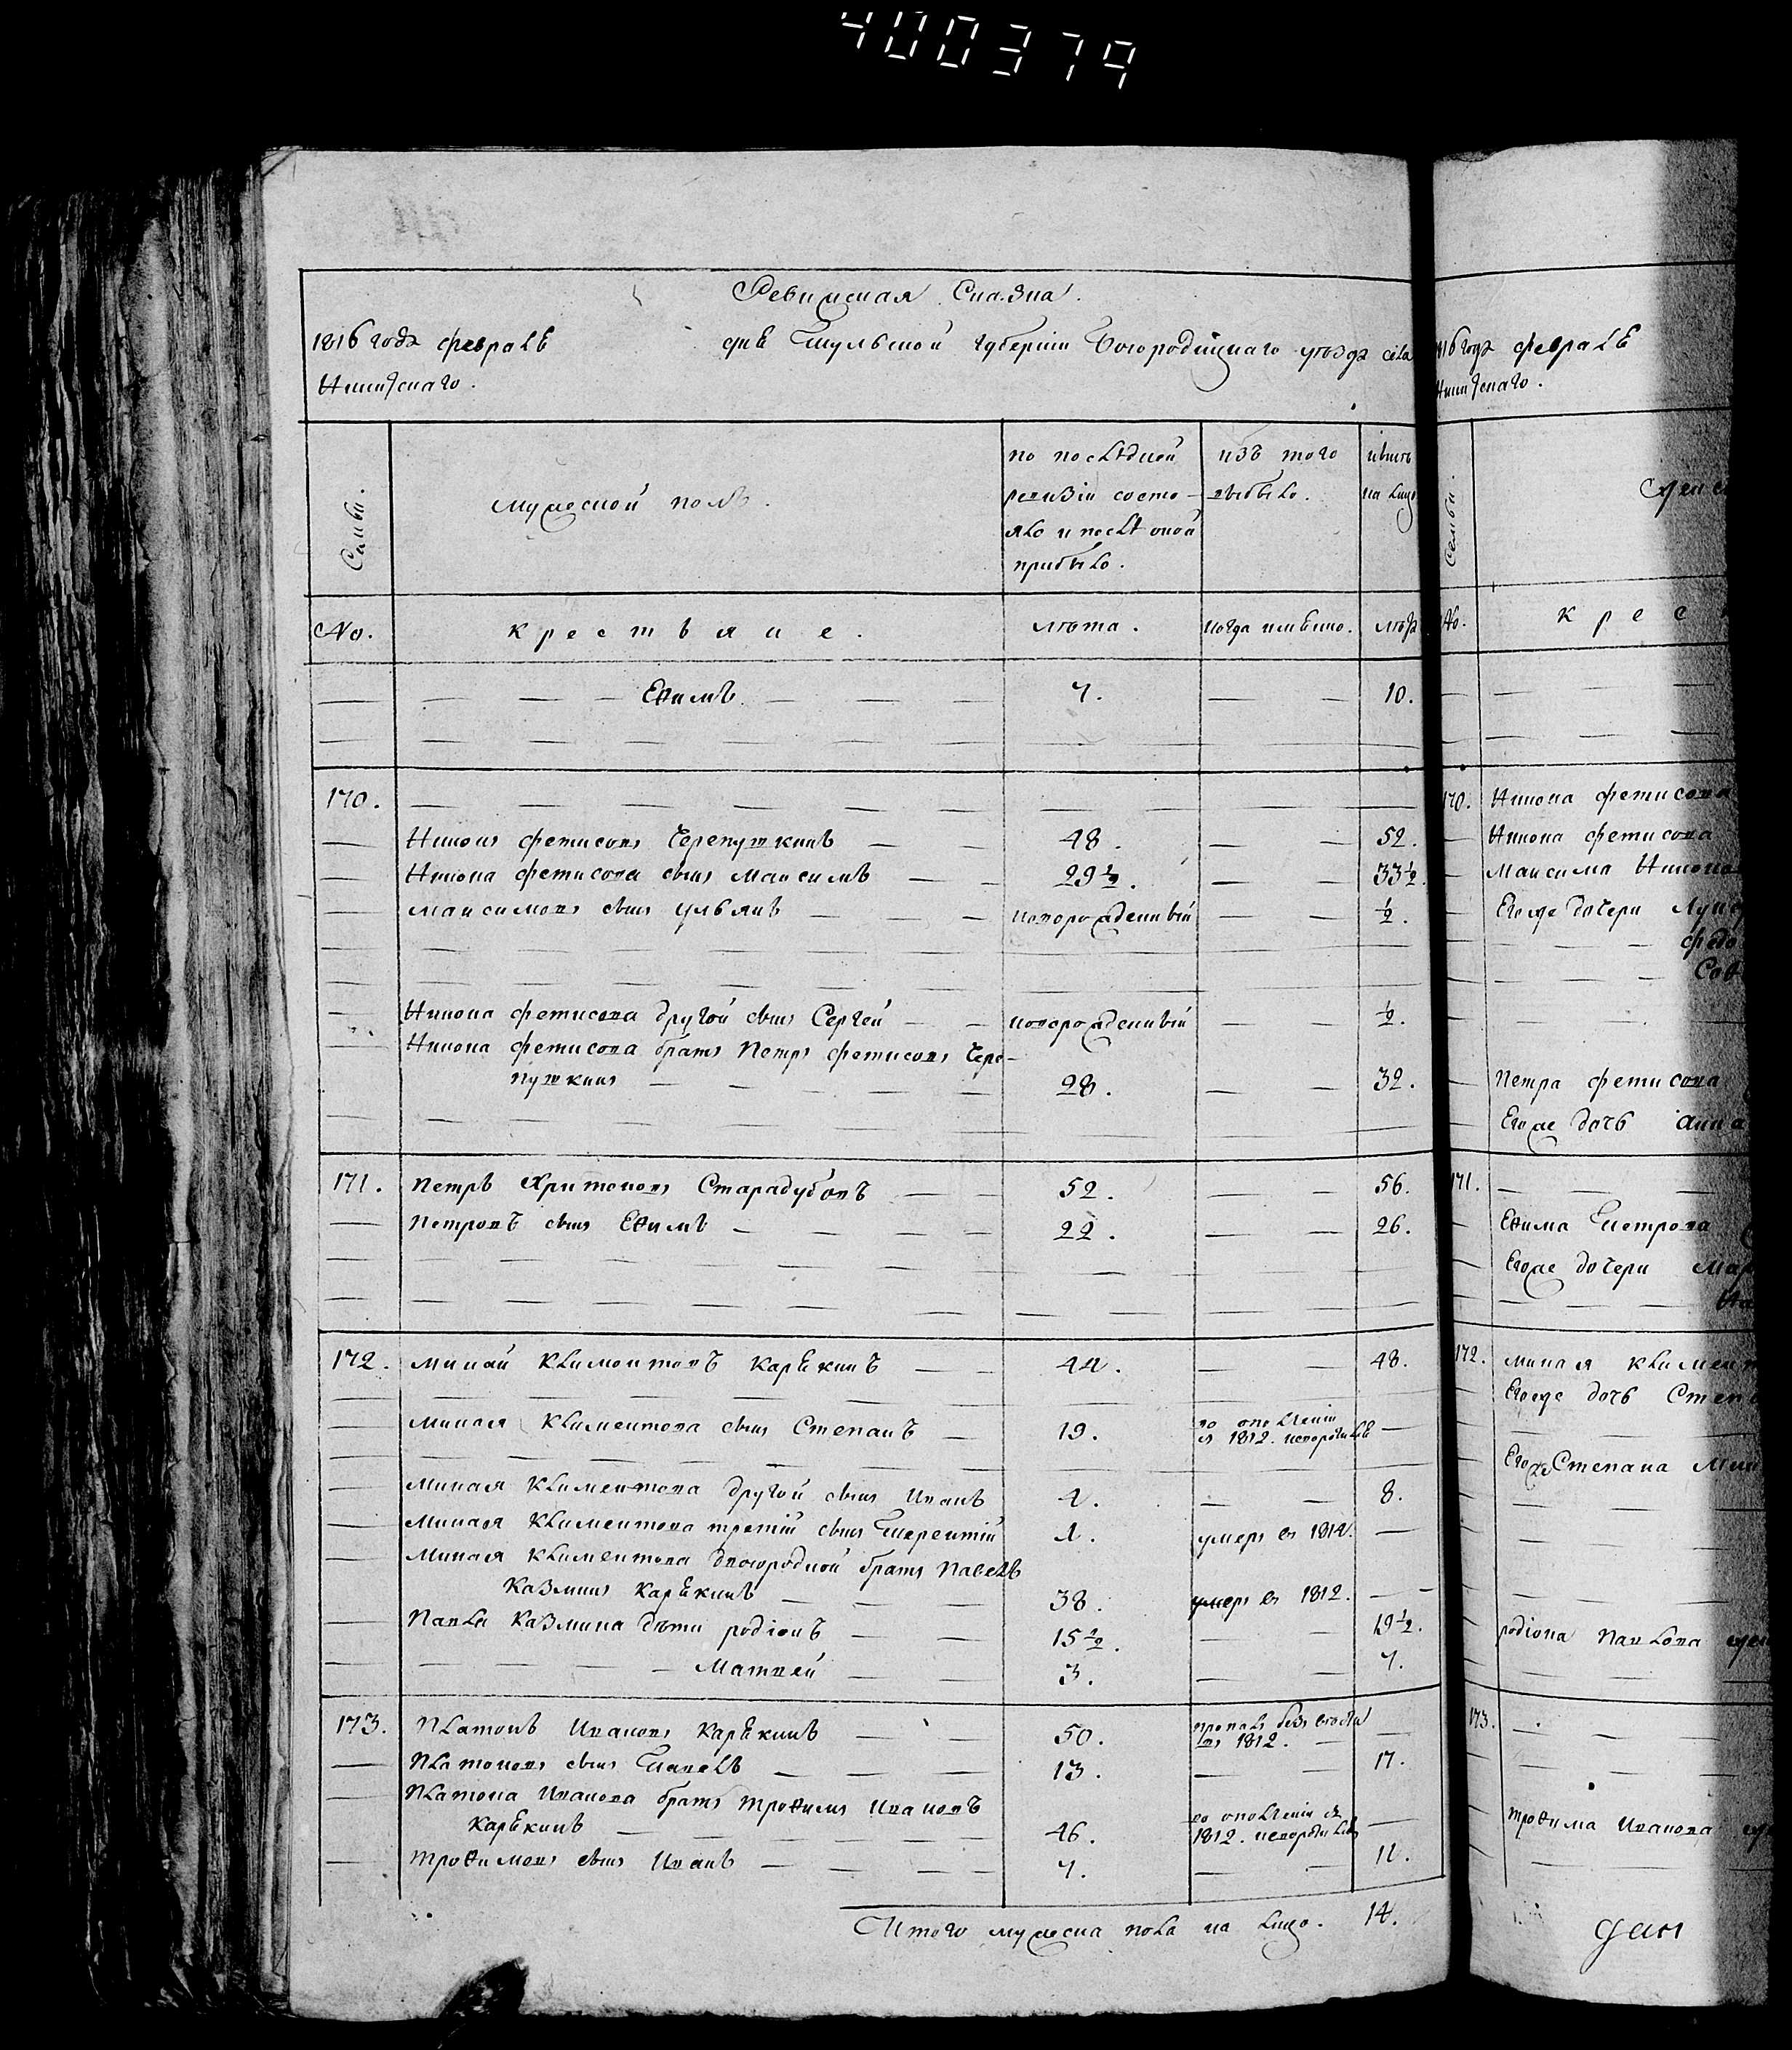 400379
Ревижская Сказка.
1816 года февраля дня Тульской Губернии Богородицкаго уезда села
Никитскаго.
Семьи.
мужеской полъ.
по последней ревизіи состояло и после оной прибыло.
изъ того выбыло.
ныне на лицо
No.
крестьяне.
лѣта.
когда имянно.
лѣта
Ефимъ 7. 10.
170.
Никонъ фетисовъ Черепушкинъ 48. 52.
Никона фетисова сынъ Максимъ 29 1/2. 33 1/2.
Максимовъ сынъ Ульянъ новорожденный 1/2.
Никона фетисова другой сынъ Сергей новорожденный 1/2.
Никона фетисова братъ Петръ фетисовъ Чере-
пушкинъ 28. 32.
171. Петръ Харитоновъ Старадубовъ 52. 56.
Петровъ сынъ Ефимъ 22. 26.
172. Минай Климонтовъ Карѣкинъ 44. 48.
Миная Климентова сынъ Степанъ 19. во ополченіи съ 1812. невозратился
Миная Климентова другой сынъ Иванъ 4. 8.
Миная Климентова третій сынъ Терентій 1. умеръ въ 1812.
Миная Климентова двоюродной братъ Павелъ
Казминъ Карѣкинъ 38. умеръ въ 1812.
Павла Казмина дѣти родіонъ 15 1/2. 19 1/2.
Матвей 3. 7.
173. Платонъ Ивановъ Карѣкинъ 50. пропалъ безъ вѣсти въ 1812.
Платоновъ сынъ Павелъ 13. 17.
Платона Иванова братъ трофимъ Ивановъ
Карѣкинъ 46. во ополченіи съ 1812. невозратился
трофимовъ сынъ Иванъ 7. 11.
Итого мужеска пола на лицо. 14.
1816 года февраля
Никитскаго.
Семьи.
No.
крес
170. Никона фетисова
Никона фетисова
Максима Никона
Егоже дочери
Петра фетисова
Егоже дочь Анна
171.
Ефима Петрова
Егоже дочери
172. Миная Климент
Егоже дочь Степ
Егоже Степана Мин
родіона Павлова
173.
трофима Иванова